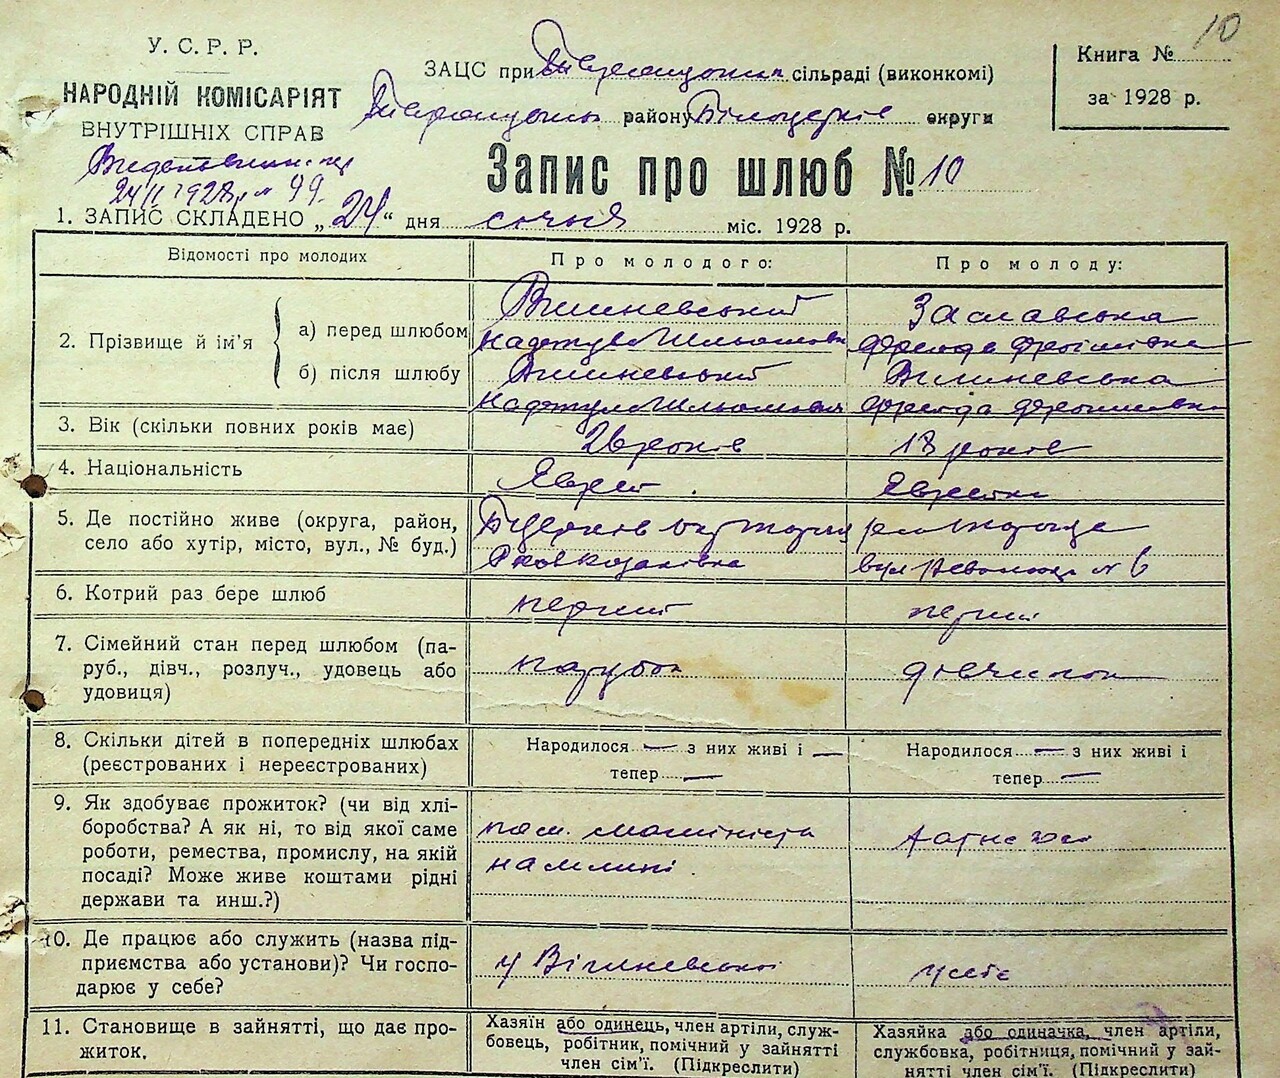 10
У. С. Р. Р.
НАРОДНІЙ КОМІСАРІЯТ
ВНУТРІШНІХ СПРАВ
24/I 1928 р. № 99.
ЗАЦС при сільраді (виконкомі)
району Білоцерків округи
Книга №
за 1928 р.
Запис про шлюб № 10
1. ЗАПИС СКЛАДЕНО „24“ дня січня міс. 1928 р.
Відомості про молодих
Про молодого:
Про молоду:
2. Прізвище й ім'я
а) перед шлюбом
Вишневський
Нафтула Шльомович
Заславська
Фрейда Фроїмівна
б) після шлюбу
Вишневський
Нафтула Шльомович
Вишневська
Фрейда Фроимовна
3. Вік (скільки повних років має)
26 років
18 років
4. Національність
Єврей
Єврейка
5. Де постійно живе (округа, район,
село або хутір, місто, вул., № буд.)
вул № 6
6. Котрий раз бере шлюб
перший
перши
7. Сімейний стан перед шлюбом (па-
руб., дівч., розлуч., удовець або
удовиця)
парубок
8. Скільки дітей в попередніх шлюбах
(реєстрованих і нереєстрованих)
Народилося — з них живі і —
тепер —
Народилося — з них живі і
тепер —
9. Як здобуває прожиток? (чи від хлі-
боробства? А як ні, то від якої саме
роботи, ремества, промислу, на якій
посаді? Може живе коштами рідні
держави та инш.?)
пом. машініста
на млині
10. Де працює або служить (назва під-
приємства або установи)? Чи госпо-
дарює у себе?
у
у себе
11. Становище в зайнятті, що дає про-
житок.
Хазяїн або одинець, член артіли, служ-
бовець, робітник, помічний у зайнятті
член сім'ї. (Підкреслити)
Хазяйка або одиначка, член артіли,
службовка, робітниця, помічний у зай-
нятті член сім'ї. (Підкреслити)